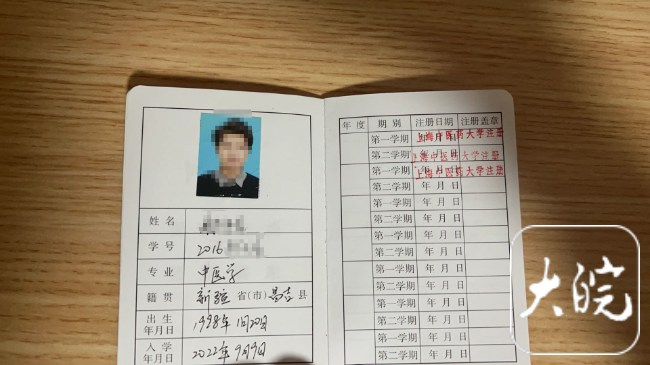 姓名
学号 2016
专业 中医学
籍贯 新疆省(市)昌吉县
出生年月日 1998年1月20日
入学年月日 2022年9月9日
年度 期别 注册日期 注册盖章
第一学期 年月日 上海中医药大学注册
第二学期 年月日 上海中医药大学注册
第一学期 年月日 上海中医药大学注册
第二学期 年月日
第一学期 年月日
第二学期 年月日
第一学期 年月日
第二学期 年月日
第一学期 年月日
第二学期 年月日
第一学期 年月日
第二学期 年月日
第一学期 年月日
第二学期 年月日
大皖